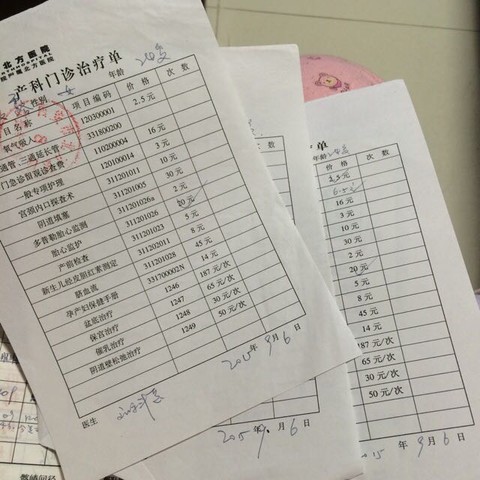 北方医院
产科门诊治疗单
性别 女 年龄 24岁
项目名称 项目编码 价格 次数
氧气吸入 120300001 2.5元
通管、三通延长管 331800200
门急诊留观诊查费 110200004 16元
一般专项护理 120100014 3元
宫颈内口探查术 311201011 10元
阴道填塞 311201005 30元
多普勒胎心监测 311201026a 2元
胎心监护 311201026 20元
产前检查 311201023 5元
新生儿经皮胆红素测定 311202011 8元
脐血流 311201028 45元
孕产妇保健手册 331700002N 14元
盆底治疗 1246 187元/次
保宫治疗 1247 65元/次
催乳治疗 1248 30元/次
阴道壁松弛治疗 1249 50元/次
医生
2015年9月6日
2015年9月6日
疗单
年龄 24岁
价格 次数
2.5元
16元
3元
10元
30元
2元
20元
5元
8元
45元
14元
187元/次
65元/次
30元/次
50元/次
2015年9月6日